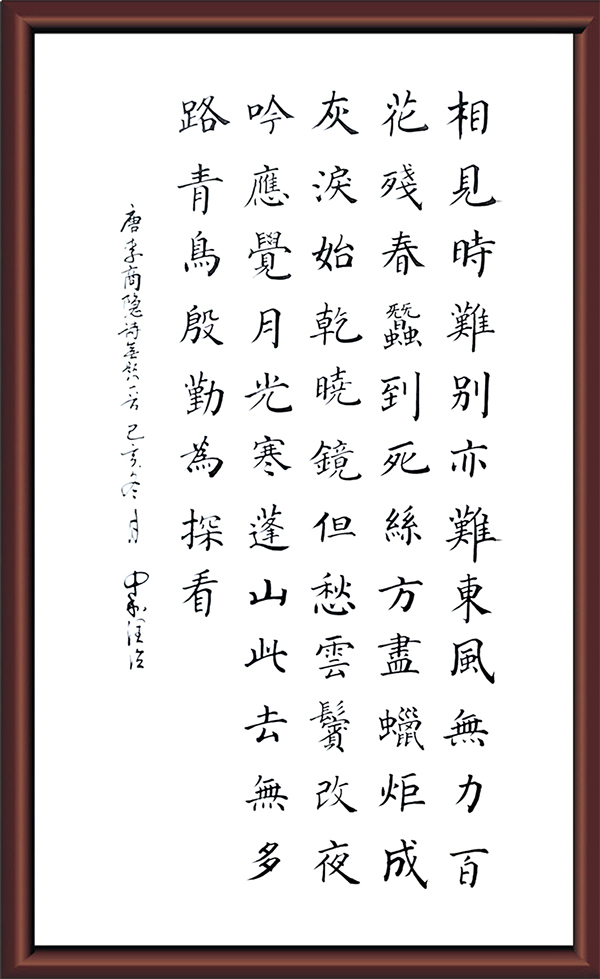 相見時難別亦難東風無力百
花殘春蠶到死絲方盡蠟炬成
灰淚始乾曉鏡但愁雲鬢改夜
吟應覺月光寒蓬山此去無多
路青鳥殷勤為探看
唐李商隐詩無题一首己亥冬月